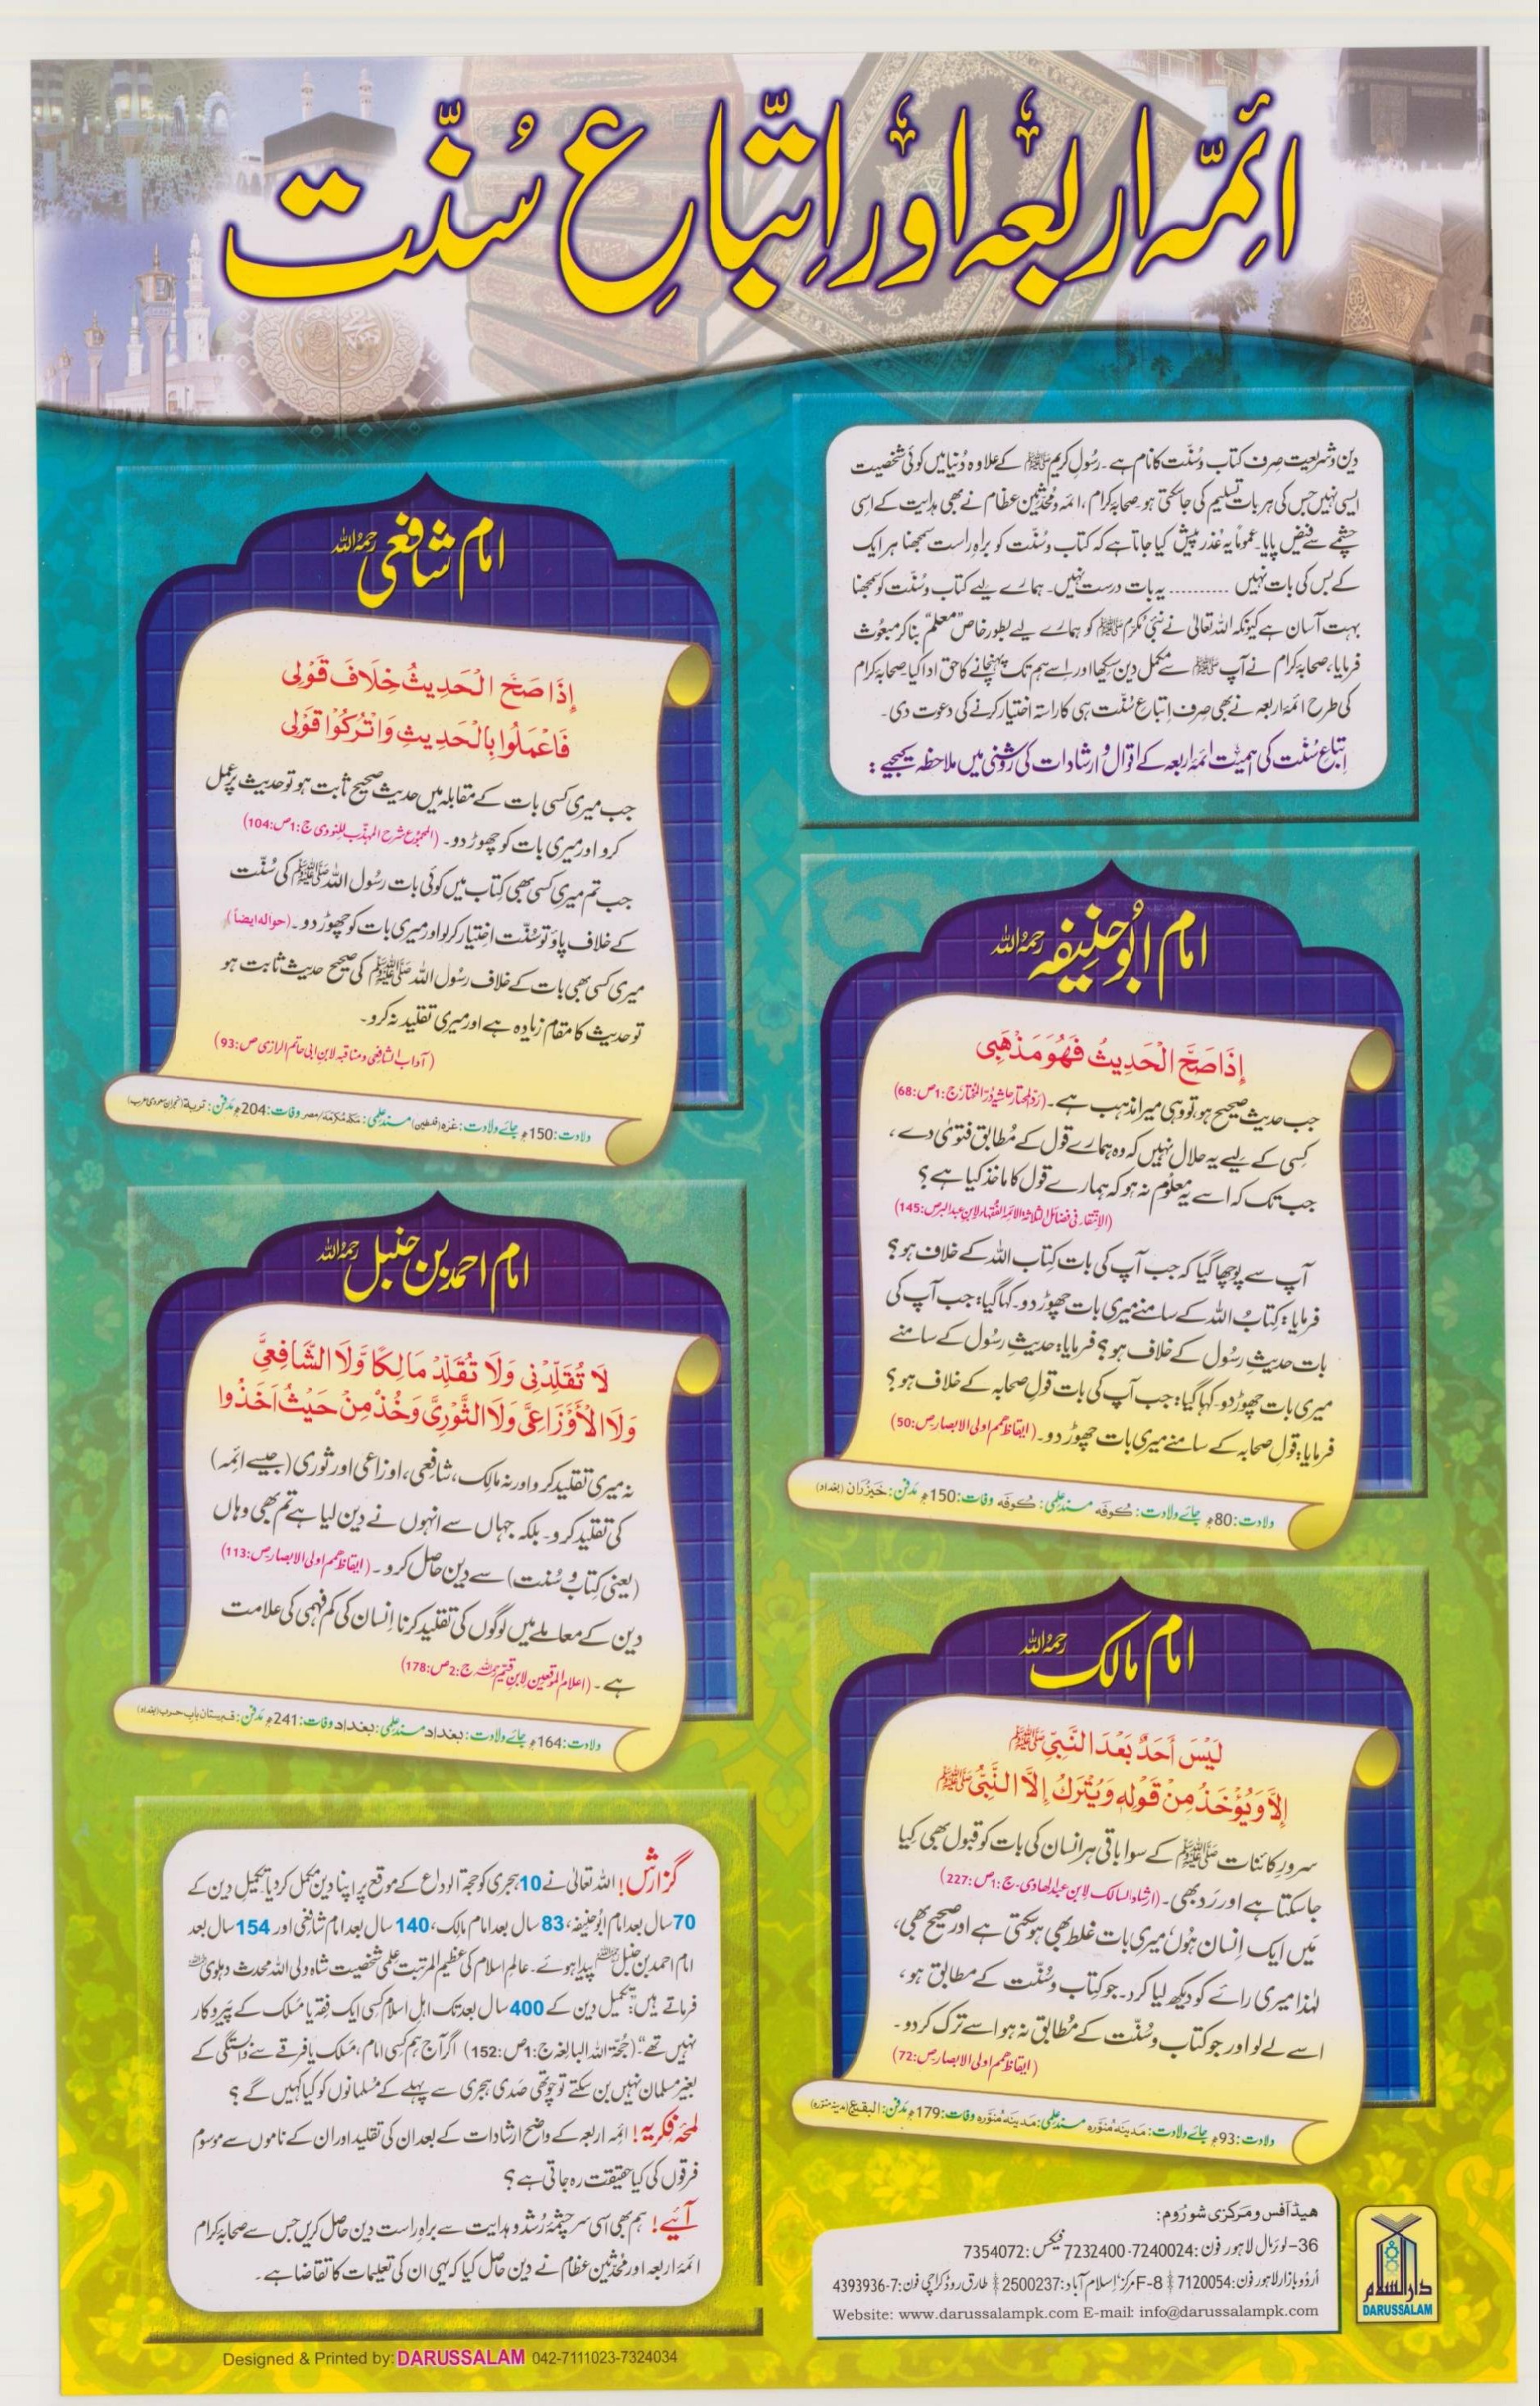 ائمّہ اربعہ اور اتّباعِ سُنّت
دین و شریعت صرف کتاب و سُنّت کا نام ہے۔ رسولِ کریم ﷺ کے علاوہ دُنیا میں کوئی شخصیت
ایسی نہیں جس کی ہر بات تسلیم کی جاسکتی ہو۔ صحابہ کرام، ائمہ و محدّثین عظام نے بھی ہدایت کے اسی
چشمے سے فیض پایا۔ عموماً یہ عذر پیش کیا جاتا ہے کہ کتاب و سُنّت کو براہِ راست سمجھنا ہر ایک
کے بس کی بات نہیں .......... یہ بات درست نہیں۔ ہمارے لیے کتاب و سُنّت کو سمجھنا
بہت آسان ہے کیونکہ اللہ تعالیٰ نے نبیٔ مکرّم ﷺ کو ہمارے لیے بطورِ خاص "معلّم" بنا کر مبعوث
فرمایا، صحابہ کرام نے آپ ﷺ سے مکمل دین سیکھا اور اسے ہم تک پہنچانے کا حق ادا کیا۔ صحابہ کرام
کی طرح ائمہ اربعہ نے بھی صرف اتباعِ سُنّت ہی کا راستہ اختیار کرنے کی دعوت دی۔
اتباعِ سُنّت کی اہمیت ائمہ اربعہ کے اقوال و ارشادات کی روشنی میں ملاحظہ کیجیے :
امام ابُو حنیفہ رحمہُ اللہ
إِذَا صَحَّ الْحَدِیثُ فَهُوَ مَذْهَبِی
جب حدیث صحیح ہو، تو وہی میرا مذہب ہے۔ (ردّ المحتار حاشیہ دُرّ المختار ج:1 ص:68)
کسی کے لیے یہ حلال نہیں کہ وہ ہمارے قول کے مُطابق فتویٰ دے،
جب تک کہ اسے یہ معلُوم نہ ہو کہ ہمارے قول کا ماخذ کیا ہے؟
(الانتقاء فی فضائل الثلاثۃ الائمۃ الفقہاء لابن عبد البر ص:145)
آپ سے پوچھا گیا کہ جب آپ کی بات کتاب اللہ کے خلاف ہو؟
فرمایا: کتابُ اللہ کے سامنے میری بات چھوڑ دو۔ کہا گیا: جب آپ کی
بات حدیثِ رسُول کے خلاف ہو؟ فرمایا: حدیثِ رسُول کے سامنے
میری بات چھوڑ دو۔ کہا گیا: جب آپ کی بات قولِ صحابہ کے خلاف ہو؟
فرمایا: قولِ صحابہ کے سامنے میری بات چھوڑ دو۔ (ایقاظ ھمم اولی الابصار ص:50)
ولادت: 80ھ جائے ولادت: کُوفَه مسندِ علمی: کُوفَه وفات: 150ھ مدفن: خَیزُران (بغداد)
امام مالک رحمہُ اللہ
لَیْسَ اَحَدٌ بَعْدَ النَّبِیِّ ﷺ
إِلَّا وَیُؤْخَذُ مِنْ قَوْلِهٖ وَیُتْرَكُ إِلَّا النَّبِیَّ ﷺ
سرورِ کائنات ﷺ کے سوا باقی ہر انسان کی بات کو قبول بھی کِیا
جاسکتا ہے اور رَد بھی۔ (ارشاد السالک لابن عبد الھادی۔ ج:1 ص:227)
مَیں ایک اِنسان ہُوں، میری بات غلط بھی ہوسکتی ہے اور صحیح بھی،
لہٰذا میری رائے کو دیکھ لیا کرو۔ جو کتاب و سُنّت کے مطابق ہو،
اسے لے لو اور جو کتاب و سُنّت کے مُطابق نہ ہو اسے ترک کردو۔
(ایقاظ ھمم اولی الابصار ص:72)
ولادت: 93ھ جائے ولادت: مَدینَه مُنَوَّره مسندِ علمی: مَدینَه مُنَوَّره وفات: 179ھ مدفن: البقیع (مدینہ منورہ)
ھیڈ آفس و مَرکزی شورُوم:
36-لوئر مال لاہور فون: 7240024-7232400 فیکس: 7354072
اُردُو بازار لاہور فون: 7120054 F-8 مرکز، اِسلام آباد: 2500237 طارق روڈ کراچی فون: 4393936-7
Website: www.darussalampk.com E-mail: info@darussalampk.com
دارالسلام
DARUSSALAM
امام شافعی رحمہُ اللہ
إِذَا صَحَّ الْحَدِیثُ خِلَافَ قَوْلِی
فَاعْمَلُوا بِالْحَدِیثِ وَاتْرُکُوْا قَوْلِی
جب میری کسی بات کے مقابلہ میں حدیث صحیح ثابت ہو تو حدیث پر عمل
کرو اور میری بات کو چھوڑ دو۔ (المجموع شرح المہذّب للنووی ج:1 ص:104)
جب تم میری کسی بھی کتاب میں کوئی بات رسُول اللہ ﷺ کی سُنّت
کے خلاف پاؤ تو سُنّت اختیار کرلو اور میری بات کو چھوڑ دو۔ (حوالہ ایضاً)
میری کسی بھی بات کے خلاف رسُول اللہ ﷺ کی صحیح حدیث ثابت ہو
تو حدیث کا مقام زیادہ ہے اور میری تقلید نہ کرو۔
(آداب الشافعی و مناقبہ لابن ابی حاتم الرازی ص:93)
ولادت: 150ھ جائے ولادت: غزہ (فلسطین) مسندِ علمی: مَکّه مُکَرَّمَه/مصر وفات: 204ھ مدفن:
امام احمد بن حنبل رحمہُ اللہ
لَا تُقَلِّدْنِی وَلَا تُقَلِّدْ مَالِکًا وَّلَا الشَّافِعِیَّ
وَلَا الْأَوْزَاعِیَّ وَلَا الثَّوْرِیَّ وَخُذْ مِنْ حَیْثُ اَخَذُوا
نہ میری تقلید کرو اور نہ مالک، شافعی، اوزاعی اور ثوری (جیسے ائِمہ)
کی تقلید کرو۔ بلکہ جہاں سے انہوں نے دین لیا ہے تم بھی وہاں
(یعنی کتاب و سُنت) سے دین حاصل کرو۔ (ایقاظ ھمم اولی الابصار ص:113)
دین کے معاملے میں لوگوں کی تقلید کرنا اِنسان کی کم فہمی کی علامت
ہے۔ (اعلام الموقعین لابن قیّم ج:2 ص:178)
ولادت: 164ھ جائے ولادت: بغداد مسندِ علمی: بغداد وفات: 241ھ مدفن: قبرستان باب حرب (بغداد)
گزارش! اللہ تعالیٰ نے 10 ہجری کو حجۃ الوداع کے موقع پر اپنا دین مکمل کردیا۔ تکمیلِ دین کے
70 سال بعد امام ابُوحنیفہ، 83 سال بعد امام مالک، 140 سال بعد امام شافعی اور 154 سال بعد
امام احمد بن حنبل پیدا ہوئے۔ عالمِ اسلام کی عظیم المرتبت علمی شخصیت شاہ ولی اللہ محدث دہلوی
فرماتے ہیں: "تکمیلِ دین کے 400 سال بعد تک اہلِ اسلام کسی ایک فقہ یا مسلک کے پَیروکار
نہیں تھے۔" (حُجّۃ اللہ البالغہ ج:1 ص:152) اگر آج ہم کسی امام، مَسلک یا فرقے سے وابستگی کے
بغیر مسلمان نہیں بن سکتے تو چوتھی صَدی ہجری سے پہلے کے مُسلمانوں کو کیا کہیں گے؟
لمحۂ فکریہ! ائِمہ اربعہ کے واضح ارشادات کے بعد ان کی تقلید اور ان کے ناموں سے موسوم
فرقوں کی کیا حقیقت رہ جاتی ہے؟
آئیے! ہم بھی اسی سرچشمۂ رُشد و ہدایت سے براہِ راست دین حاصل کریں جس سے صحابہ کرام
ائمۂ اربعہ اور محدّثین عظام نے دین حاصل کیا کہ یہی ان کی تعلیمات کا تقاضا ہے۔
Designed & Printed by: DARUSSALAM 042-7111023-7324034